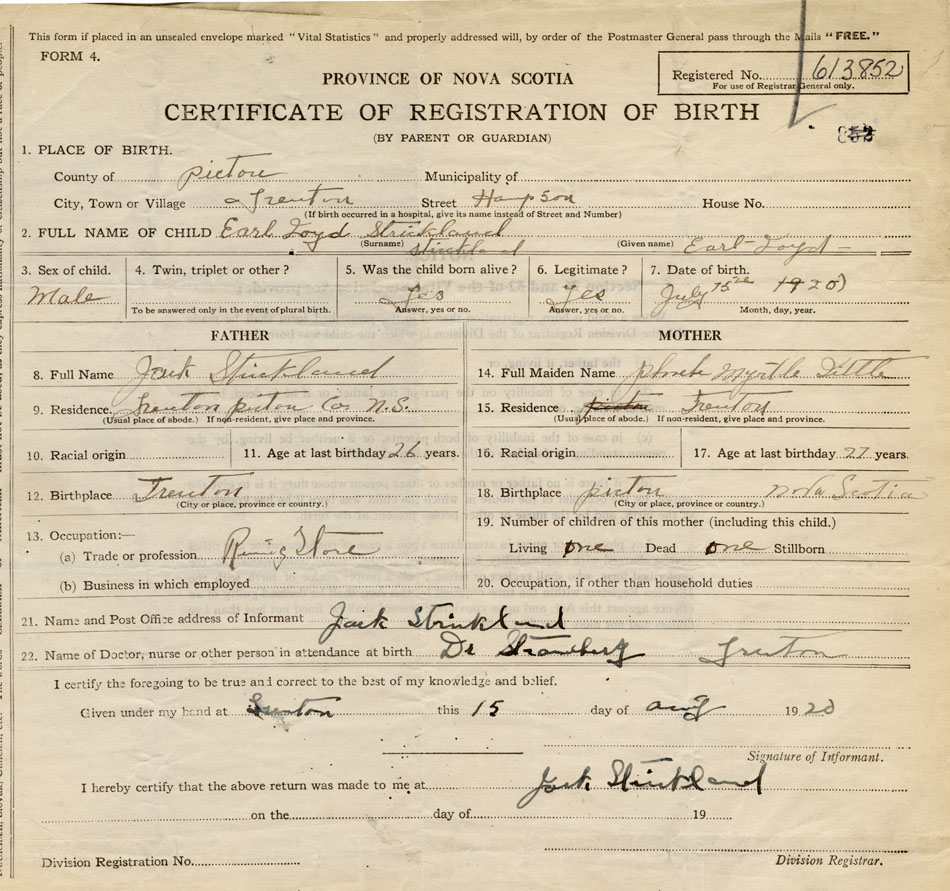 This form if placed in an unsealed envelope marked "Vital Statistics" and properly addressed will, by order of the Postmaster General pass through the Mails "FREE."
FORM 4.
Registered No. 613852
For use of Registrar General only.
PROVINCE OF NOVA SCOTIA
CERTIFICATE OF REGISTRATION OF BIRTH
(BY PARENT OR GUARDIAN)
1. PLACE OF BIRTH.
County of Picton Municipality of
City, Town or Village Trenton Street Hampson House No.
(If birth occurred in a hospital, give its name instead of Street and Number)
2. FULL NAME OF CHILD Earl Loyd Strickland
(Surname) Strickland (Given name) Earl Loyd
3. Sex of child. 4. Twin, triplet or other? 5. Was the child born alive? 6. Legitimate? 7. Date of birth.
Male Yes Yes July 1920
To be answered only in the event of plural birth. Answer, yes or no. Answer, yes or no. Month, day, year.
FATHER MOTHER
8. Full Name Jack Strickland 14. Full Maiden Name Phoebe Myrtle Tuttle
9. Residence. Trenton Picton Co N.S. 15. Residence Picton Trenton
(Usual place of abode.) If non-resident, give place and province. (Usual place of abode.) If non-resident, give place and province.
10. Racial origin 11. Age at last birthday 26 years. 16. Racial origin 17. Age at last birthday 27 years.
12. Birthplace Trenton 18. Birthplace Picton Nova Scotia
(City or place, province or country.) (City or place, province or country.)
13. Occupation:— 19. Number of children of this mother (including this child.)
(a) Trade or profession Store Living one Dead one Stillborn
(b) Business in which employed 20. Occupation, if other than household duties
21. Name and Post Office address of Informant Jack Strickland
22. Name of Doctor, nurse or other person in attendance at birth Dr Trenton
I certify the foregoing to be true and correct to the best of my knowledge and belief.
Given under my hand at Trenton this 15 day of Aug 1920
Signature of Informant.
I hereby certify that the above return was made to me at Jack Strickland
on the day of 19
Division Registration No. Division Registrar.